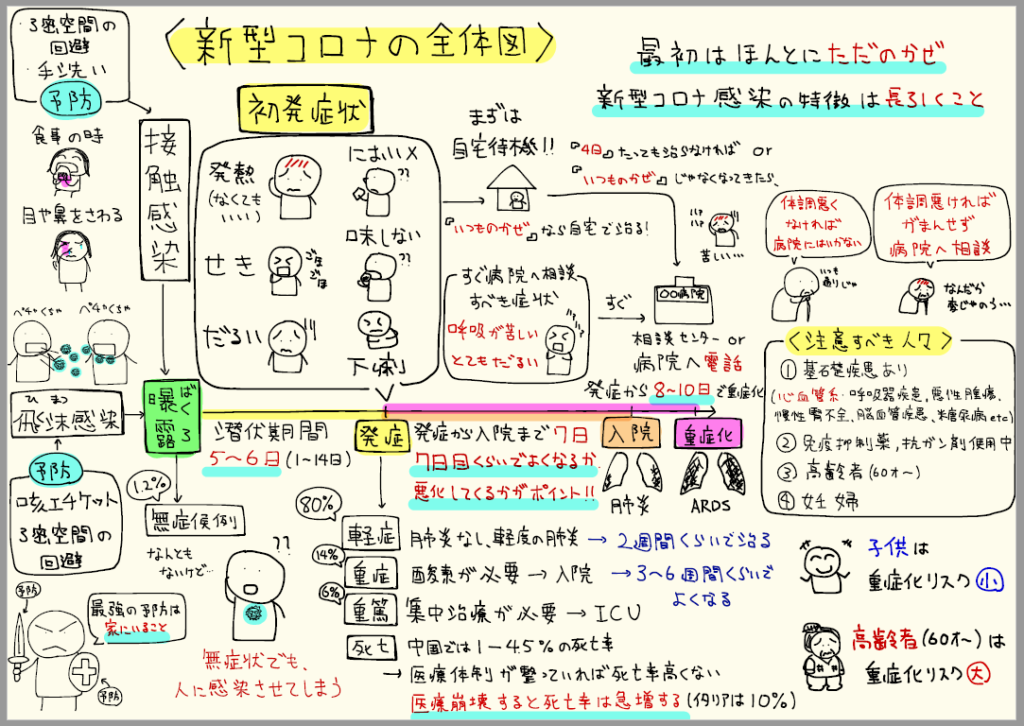 〈新型コロナの全体図〉
最初はほんとにただのかぜ
新型コロナ感染の特徴は長引くこと
3密空間の
回避
・手洗い
予防
食事の時
目や鼻をさわる
接触感染
ペチャくちゃ
ペチャくちゃ
ひまつ
飛沫感染
予防
咳エチケット
3密空間の
回避
予防
最強の予防は
家にいること
予防
初発症状
発熱
(なくても
いい)
せき
ゴホ
ゴホ
だるい
におい×
??
味しない
??
下痢
まずは
自宅待機!!
『いつものかぜ』なら自宅で治る!
『4日』たっても治らなければ or
『いつものかぜ』じゃなくなってきたら、
苦しい…
すぐ病院へ相談
すべき症状
呼吸が苦しい
とてもだるい
すぐ
〇〇病院
相談センター or
病院へ電話
体調悪く
なければ
病院にはいかない
いつも
通りじゃ
体調悪ければ
がまんせず
病院へ相談
なんだか
変じゃのう…
〈注意すべき人々〉
① 基礎疾患あり
(心血管系・呼吸器疾患、悪性腫瘍、
慢性腎不全、脳血管疾患、糖尿病 etc)
② 免疫抑制薬、抗ガン剤使用中
③ 高齢者(60才〜)
④ 妊婦
ばくろ
曝露
潜伏期間
5〜6日(1〜14日)
発症
発症から入院まで7日
7日目くらいでよくなるか
悪化してくるかがポイント!!
発症から8〜10日で重症化
入院
重症化
肺炎
ARDS
1.2%
無症候例
なんとも
ないけど…
??
無症状でも、
人に感染させてしまう
80%
軽症 肺炎なし、軽度の肺炎 → 2週間くらいで治る
14%
重症 酸素が必要 → 入院 → 3〜6週間くらいで
よくなる
6%
重篤 集中治療が必要 → ICU
死亡 中国では1−4.5%の死亡率
→ 医療体制が整っていれば死亡率高くない
医療崩壊すると死亡率は急増する(イタリアは10%)
子供は
重症化リスク小
高齢者(60才〜)は
重症化リスク大